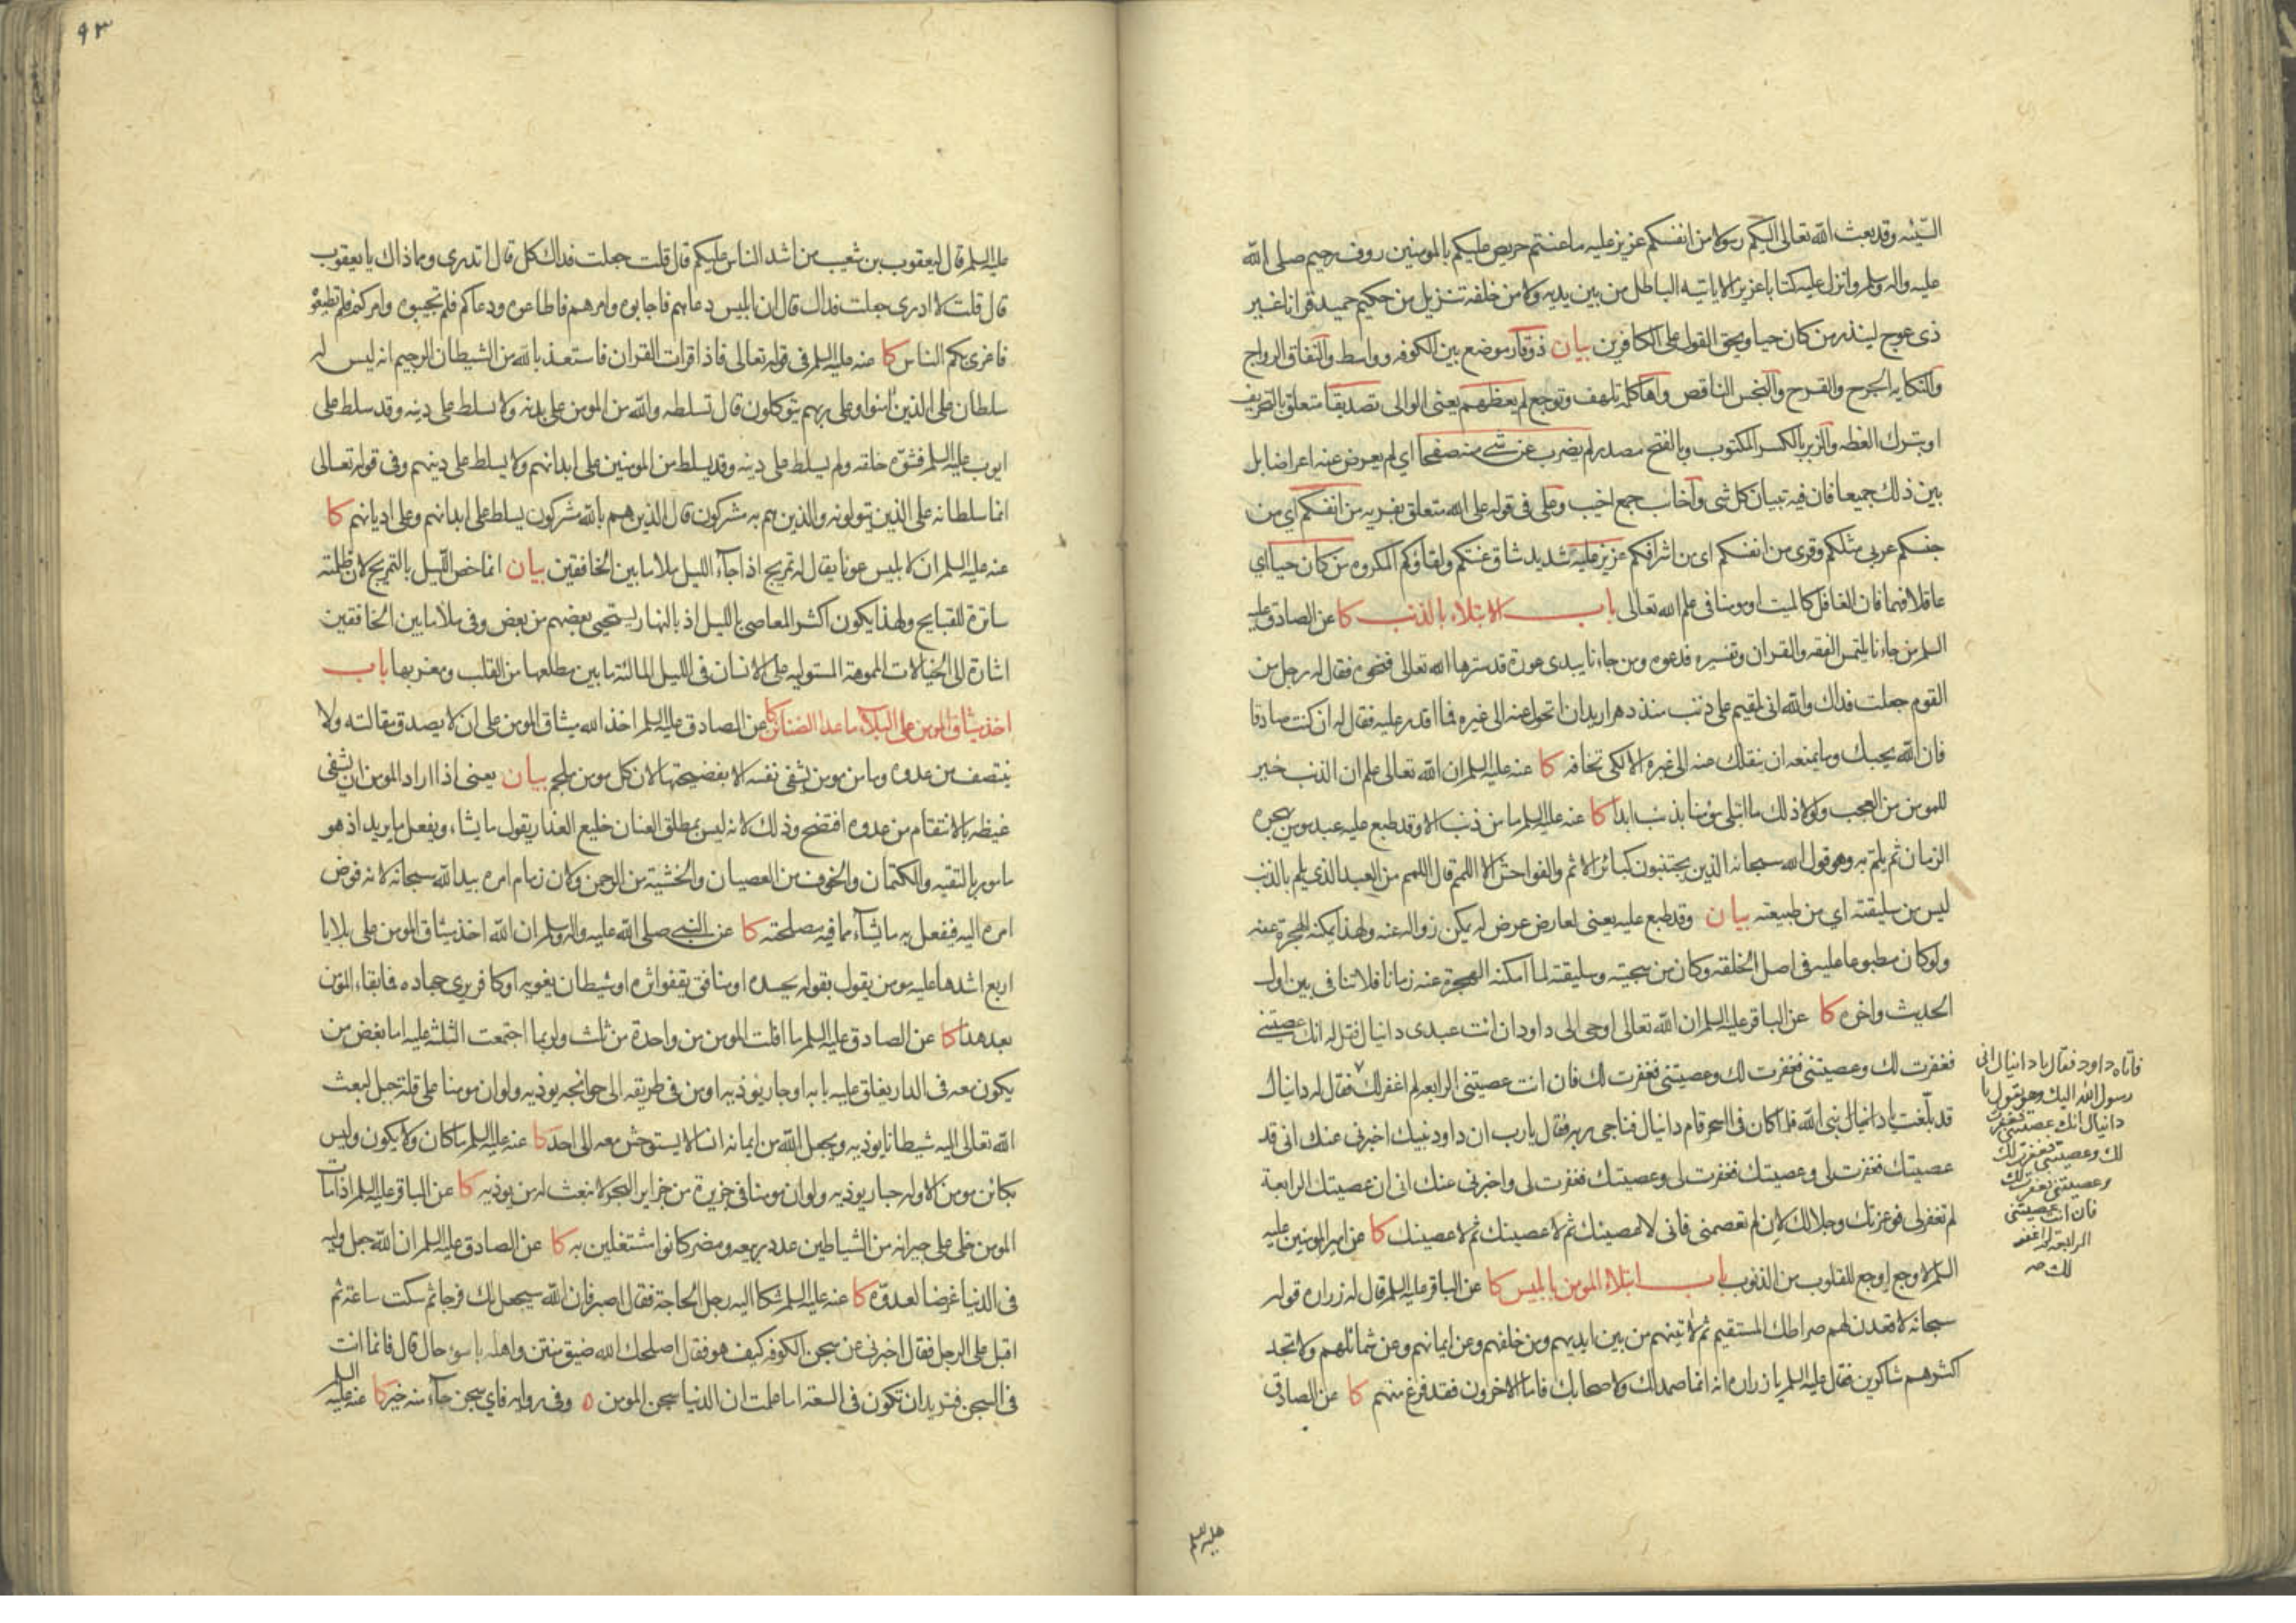 السّيئه وقد بعث الله تعالى اليكم رسولا من انفسكم عزيز عليه ماعنتم حريص عليكم بالمومنين روف رحيم صلى الله
عليه واله وسلم وانزل عليه كتابا عزيزا لا ياتيه الباطل من بين يديه ولا من خلفه تنزيل من حكيم حميد قرانا غير
ذى عوج لينذر من كان حيا ويحق القول على الكافرين بيان ذوقار موضع بين الكوفه وواسط والنفاق الرواج
والنكايه الجرح والقرح والبخس الناقص واها كلمه تلهف وتوجع لم يعظهم يعنى الوالى تصديقا متعلق بالتحريف
او بترك الغطه والزبر بالكسر المكتوب وبالفتح مصدر لم يضرب عن شى منه صفحا اي لم يعرض عنه اعراضا بل
بين ذلك جميعا فان فيه تبيان كل شى وآخاب جمع اخيب وعلى فى قوله على الله متعلق بفريه من انفسكم اي من
جنسكم عربى مثلكم وقرى من انفسكم اى من اشرافكم عزيز عليه شديد شاق عنتكم ولقاؤكم المكروه من كان حيا اي
عاقلا فهما فان الغافل كالميت او مومنا فى علم الله تعالى باب الابتلاء بالذنب كا عن الصادق عليه
السلم من جاءنا يلتمس الفقه والقران وتفسيره فدعوه ومن جاءنا يبدى عورة قد سترها الله تعالى فنحوه فقال له رجل من
القوم جعلت فداك والله انى لمقيم على ذنب منذ دهر اريد ان اتحول عنه الى غيره فما اقدر عليه فقال له ان كنت صادقا
فان الله يحبك وما يمنعه ان ينقلك منه الى غيره الا لكى تخافه كا عنه عليه السلم ان الله تعالى علم ان الذنب خير
للمومن من العجب ولولا ذلك ما ابتلى مؤمنا بذنب ابدا كا عنه عليه السلم ما من ذنب الا وقد طبع عليه عبد مومن يهجره
الزمان ثم يلم به وهو قول الله سبحانه الذين يجتنبون كبائر الاثم والفواحش الا اللمم قال اللمم من العبد الذي يلم بالذنب
ليس من سليقته اي من طبيعته بيان وقد طبع عليه يعنى لعارض عرض له يمكن زواله عنه ولهذا يمكنه الهجرة عنه
ولو كان مطبوعا عليه فى اصل الخلقه وكان من سجيته وسليقته لما امكنه الهجرة عنه زمانا فلا تنافى بين اول
الحديث واخره كا عن الباقر عليه السلم ان الله تعالى اوحى الى داود ان ائت عبدى دانيال فقل له انك عصيتنى
فغفرت لك وعصيتنى فغفرت لك وعصيتنى فغفرت لك فان انت عصيتنى الرابعه لم اغفر لك فقال له دانيال
قد بلّغت يا دانيال نبى الله فلما كان فى السحر قام دانيال فناجى ربه فقال يارب ان داود نبيك اخبرنى عنك انى قد
عصيتك فغفرت لى وعصيتك فغفرت لى وعصيتك فغفرت لى واخبرنى عنك انى ان عصيتك الرابعة
لم تغفر لى فوعزتك وجلالك لان لم تعصمنى فانى لاعصينك ثم لاعصينك ثم لاعصينك كا عن امير المومنين عليه
السلم لا وجع اوجع للقلوب من الذنوب باب ابتلاء المومن بابليس كا عن الباقر عليه السلم قال له زراره قوله
سبحانه لاقعدن لهم صراطك المستقيم ثم لاتينهم من بين ايديهم ومن خلفهم وعن ايمانهم وعن شمائلهم ولا تجد
اكثرهم شاكرين فقال عليه السلم يا زراره انه انما صمد لك ولاصحابك فاما الاخرون فقد فرغ منهم كا عن الصادق
فاتاه داود فقال يا دانيال انى
رسول الله اليك وهو يقول يا
دانيال انك عصيتنى فغفرت
لك وعصيتنى فغفرت لك
وعصيتنى فغفرت لك
فان انت عصيتنى
الرابعه لم اغفر
لك صه
عليه السلم
٩٣
عليه السلم قال ليعقوب بن شعيب من اشد الناس عليكم قال قلت جعلت فداك كل قال اتدرى ومما ذاك يا يعقوب
قال قلت لا ادرى جعلت فداك قال ان ابليس دعاهم فاجابوه وامرهم فاطاعوه ودعاكم فلم تجيبوه وامركم فلم تطيعوه
فاغرى بكم الناس كا عنه عليه السلم فى قوله تعالى فاذا قرات القران فاستعذ بالله من الشيطان الرجيم انه ليس له
سلطان على الذين امنوا وعلى ربهم يتوكلون قال تسلطه والله من المومن على بدنه ولا يسلط على دينه وقد سلط على
ايوب عليه السلم فشوّه خلقه ولم يسلط على دينه وقد يسلط من المومنين على ابدانهم ولا يسلط على دينهم وفى قوله تعالى
انما سلطانه على الذين يتولونه والذين هم به مشركون قال الذين هم بالله مشركون يسلط على ابدانهم وعلى اديانهم كا
عنه عليه السلم ان لابليس عونا يقال له تمريح اذا جآء الليل ملا ما بين الخافقين بيان انما خص الليل بالتمريح لان ظلمته
ساترة للقبايح ولهذا يكون اكثر المعاصى بالليل اذ بالنهار يستحيى بعضهم من بعض وفى ملا ما بين الخافقين
اشارة الى الخيالات المموهة المستوليه على الانسان فى الليل المالئة ما بين مطلعها من القلب ومغربها باب
اخذ ميثاق المومن على البلاء ما عدا الضنائن كا عن الصادق عليه السلم اخذ الله ميثاق المومن على ان لا يصدق مقالته ولا
ينتصف من عدوه وما من مومن يشفى نفسه الا بفضيحتها لان كل مومن ملجم بيان يعنى اذا اراد المومن ان يشفى
غيظه بالانتقام من عدوه افتضح وذلك لانه ليس بمطلق العنان خليع العذار يقول ما يشاء ويفعل ما يريد اذ هو
مامور بالتقيه والكتمان والخوف من العصيان والخشية من الرحمن ولان زمام امره بيد الله سبحانه لانه فوض
امره اليه فيفعل به ما يشاء مما فيه مصلحته كا عن النبى صلى الله عليه واله وسلم ان الله اخذ ميثاق المومن على بلايا
اربع اشدها عليه مومن يقول بقوله يحسده او منافق يقفو اثره او شيطان يغويه او كافر يرى جهاده فما بقاء المومن
بعد هذا كا عن الصادق عليه السلم ما افلت المومن من واحدة من ثلث ولربما اجتمعت الثلثة عليه اما بغض من
يكون معه فى الدار يغلق عليه بابه او جار يؤذيه او من فى طريقه الى حوائجه يوذيه ولو ان مومنا على قلة جبل لبعث
الله تعالى اليه شيطانا يوذيه ويجعل الله من ايمانه انسا لا يستوحش معه الى احد كا عنه عليه السلم ما كان ولا يكون وليس
بكائن مومن الا وله جار يوذيه ولو ان مومنا فى جزيرة من جزاير البحر لانبعث له من يوذيه كا عن الباقر عليه السلم اذا مات
المومن خلى على جيرانه من الشياطين عدد ربيعه ومضر كانوا مشتغلين به كا عن الصادق عليه السلم ان الله جعل وليه
فى الدنيا غرضا لعدوّه كا عنه عليه السلم شكا اليه رجل الحاجة فقال اصبر فان الله سيجعل لك فرجا ثم سكت ساعة ثم
اقبل على الرجل فقال اخبرنى عن سجن الكوفه كيف هو فقال اصلحك الله ضيق منتن واهله باسوء حال قال فانما انت
فى السجن فتريد ان تكون فى السعة اما علمت ان الدنيا سجن المومن ه وفى روايه فاي سجن جآء منه خير كا عنه عليه السلم